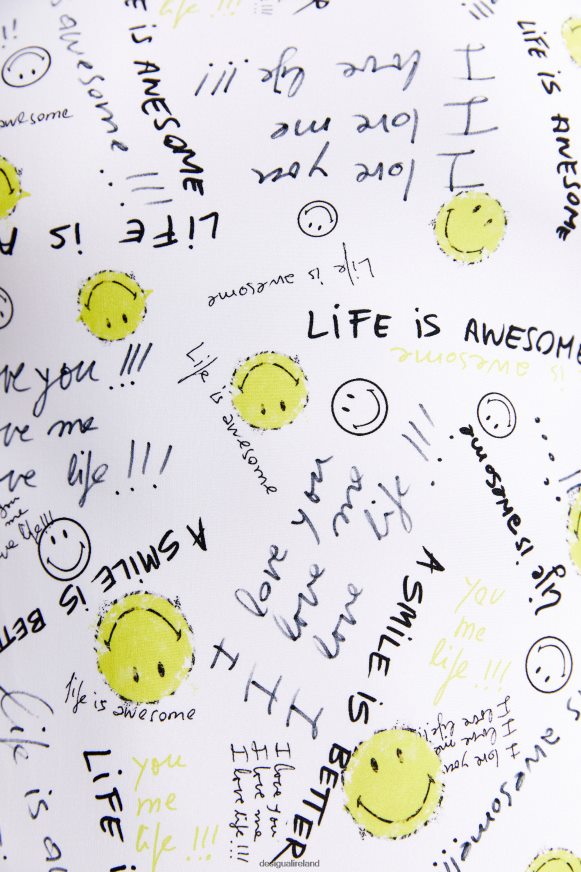 you
life !!!
LIFE IS AWESOME
awesome !!!
awesome
I love you
I love me
I love life !!!
LIFE IS AWESOME
LIFE IS A
Life is awesome
LIFE IS AWESOME
is awesome
ve you !!!
ve me
ve life !!!
Life is awesome
I love you
I love me
I love life !!!
Life is awesome
me
ve life!!!
A SMILE IS BETTE
A SMILE IS BETTER
you
me
life !!!
life is awesome
Life is a
LIFE i
you
me
life !!!
I love you
I love me
I love life!!!
I love you
I love me
I love life!!
s awesome!!!
desigualireland